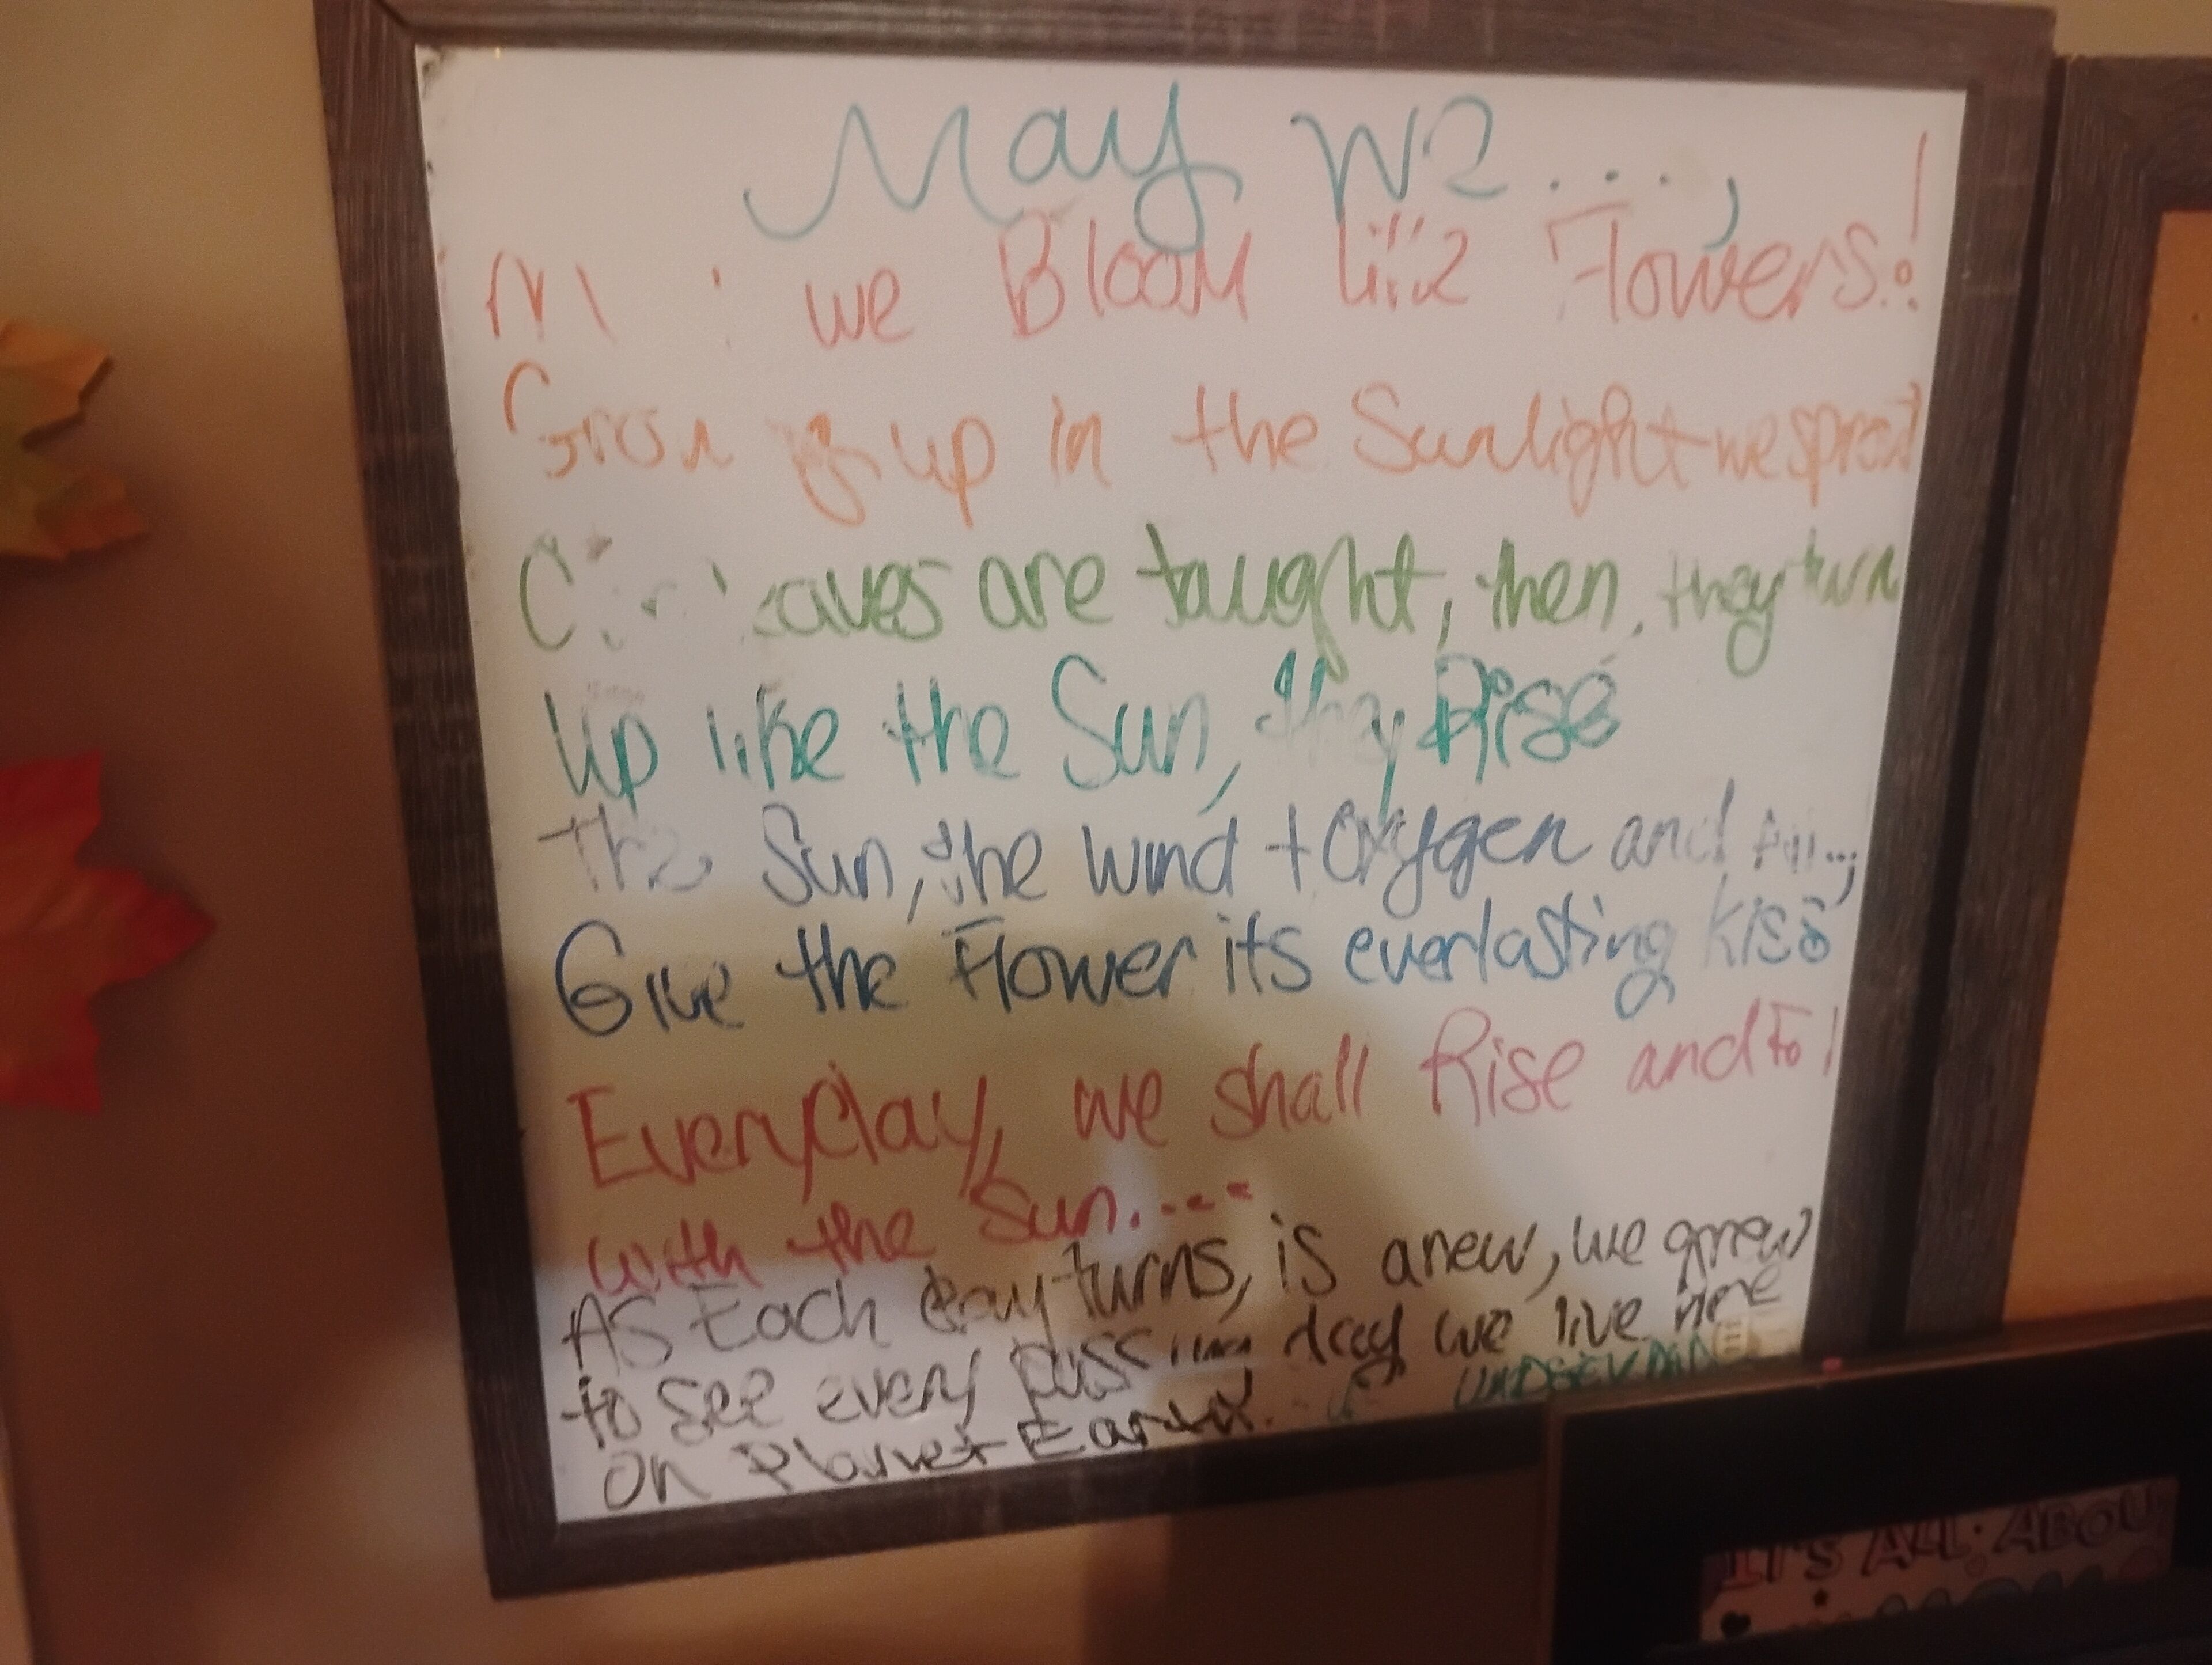 May we...,
we Bloom like Flowers!
Growing up in the Sunlight we sprout
leaves are taught, then, they turn
Up like the Sun, they Rise
The Sun, the wind + Oxygen and
Give the Flower its everlasting kiss
Everyday, we shall Rise and
with the Sun....
As Each day turns, is anew, we grew
to see every passing day we live here
on Planet Earth.
IT'S ALL ABOU